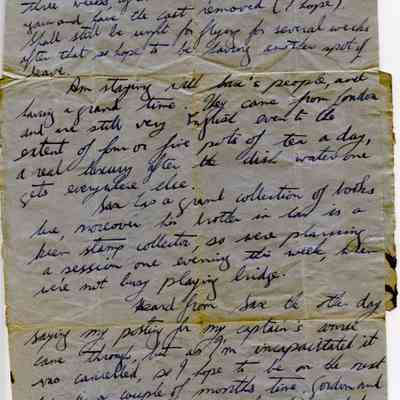 three weeks
and have the cast removed (I hope).
Shall still be unfit for flying for several weeks
after that so hope to be having another spot of
leave.
Am staying with Sax's people, and
having a grand time. They came from London
and are still very English even to the
extent of four or five pots of tea a day,
a real luxury after the dish water one
gets everywhere else.
Sax has a grand collection of books
here, moreover his brother in law is a
keen stamp collector, so we're planning
a session one evening this week, when
we're not busy playing bridge.
Heard from Sax the other day
saying my posting for my captain's course
came through, but as I'm incapacitated it
was cancelled, so I hope to be on the next
couple of months time. Gordon and